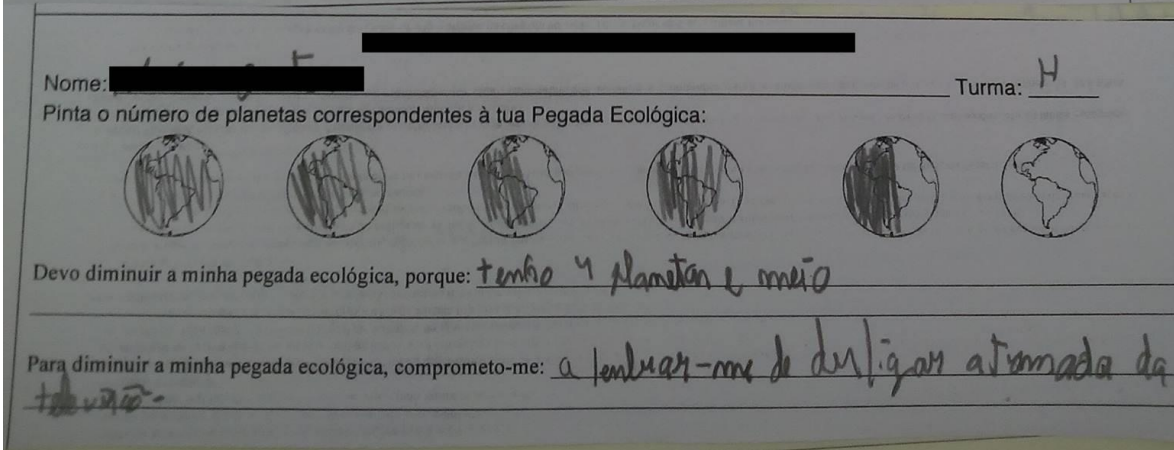 Nome:
Turma: H
Pinta o número de planetas correspondentes à tua Pegada Ecológica:
Devo diminuir a minha pegada ecológica, porque: tenho 4 planetas e meio
Para diminuir a minha pegada ecológica, comprometo-me: a lembrar-me de desligar a tomada da
televisão.